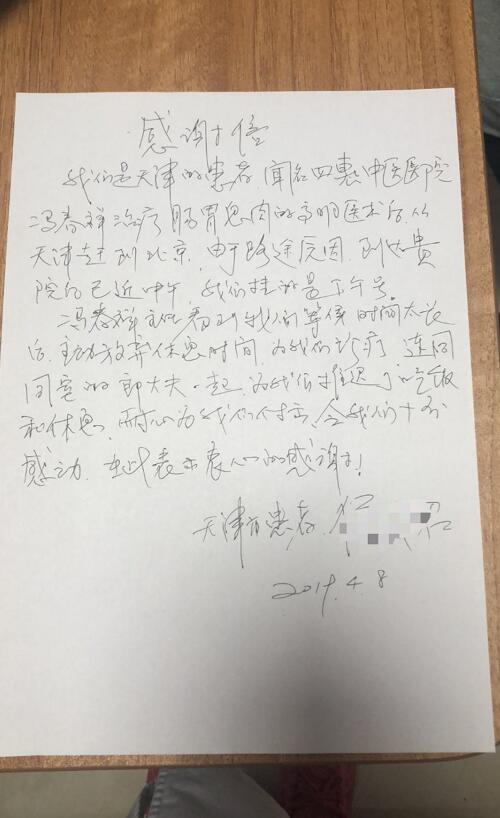 感谢信
我们是天津的患者,闻名四惠中医医院
冯春祥治疗肠胃息肉的高明医术后从
天津赶到北京,由于路途原因,到达贵
院的已近中午,我们挂的是下午号。
冯春祥主任看到我们等候时间太长
后,主动放弃休息时间,为我们诊疗,连同
同室的郭大夫一起,为我们推迟了吃饭
和休息,耐心为我们付出,令我们十分
感动,在此表示衷心的感谢!
天津市患者
2019.4.8